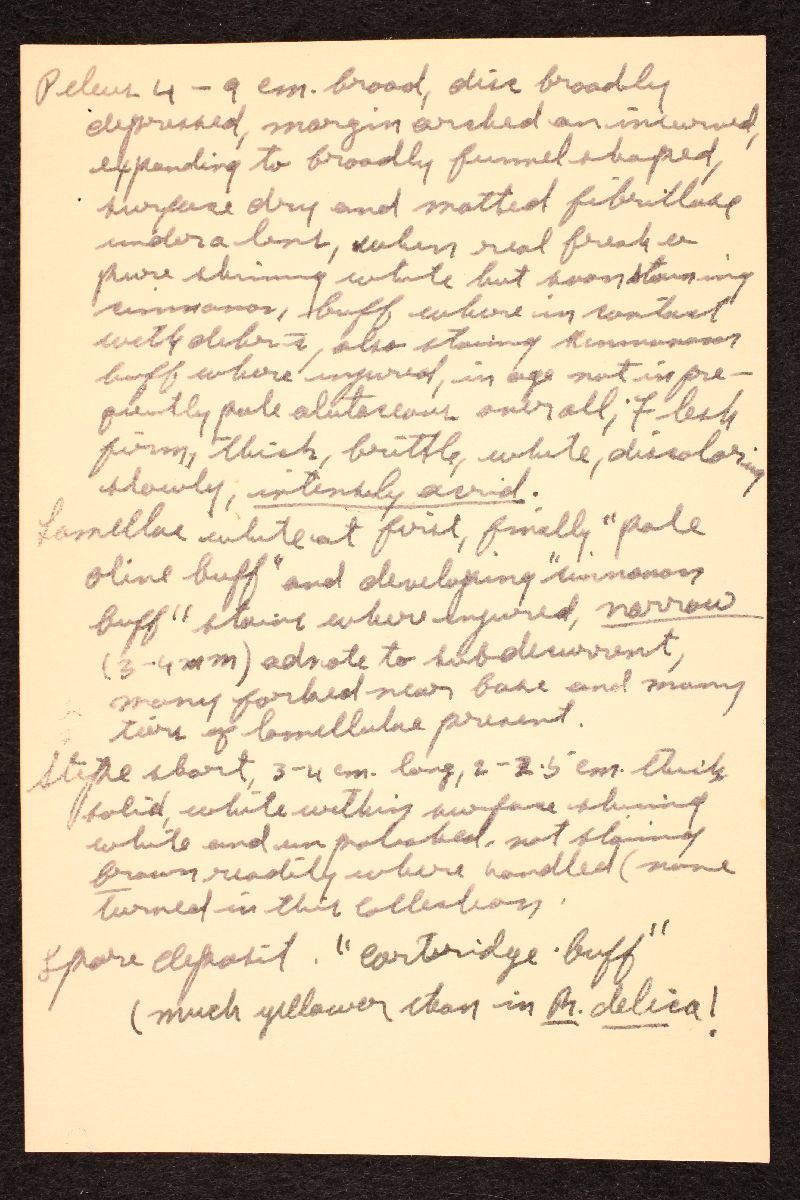 Pileus 4 – 9 cm. broad, disc broadly
depressed, margin arched an incurved,
expanding to broadly funnel shaped,
surface dry and matted fibrillose
under a lens, when real fresh a
pure shining white but soon staining
cinnamon, buff where in contact
with debris, also staining cinnamon
buff where injured, in age not infre-
quently pale alutaceous over all; Flesh
firm, thick, brittle, white, discoloring
slowly, intensely acrid.
Lamellae white at first, finally "pale
olive buff" and developing "cinnamon
buff" stains where injured, narrow
(3-4 mm) adnate to subdecurrent,
many forked near base and many
tiers of lamellulae present.
Stipe short, 3-4 cm. long, 2-2.5 cm. thick
solid, white within surface shining
white and unpolished, not staining
brown readily where handled (none
turned in this collection.
Spore deposit. "cartridge buff"
(much yellower than in R. delica!